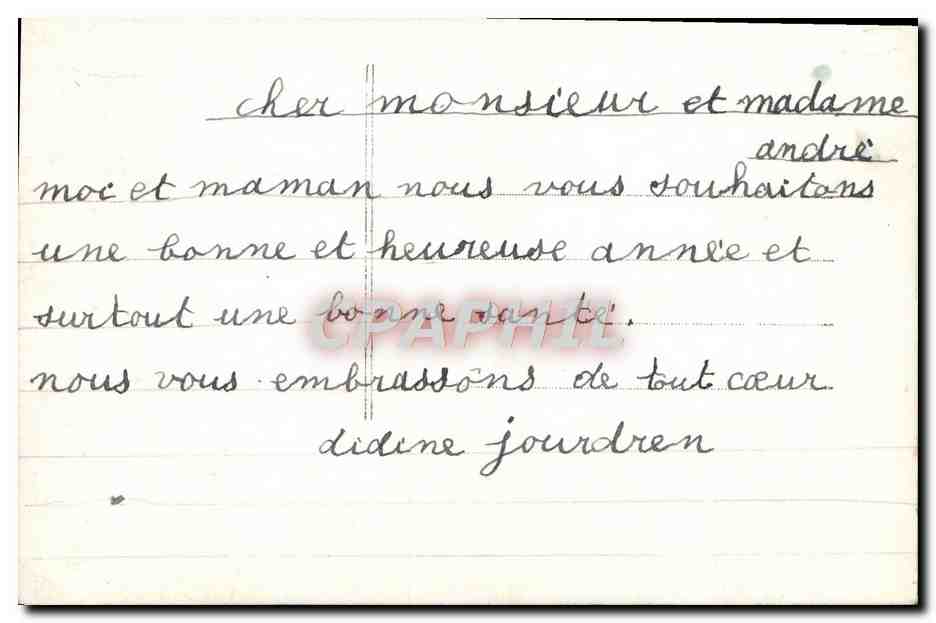 cher monsieur et madame
andré
moi et maman nous vous souhaitons
une bonne et heureuse année et
surtout une bonne santé.
CPAPHIL
nous vous embrassons de tout cœur
didine jourdren